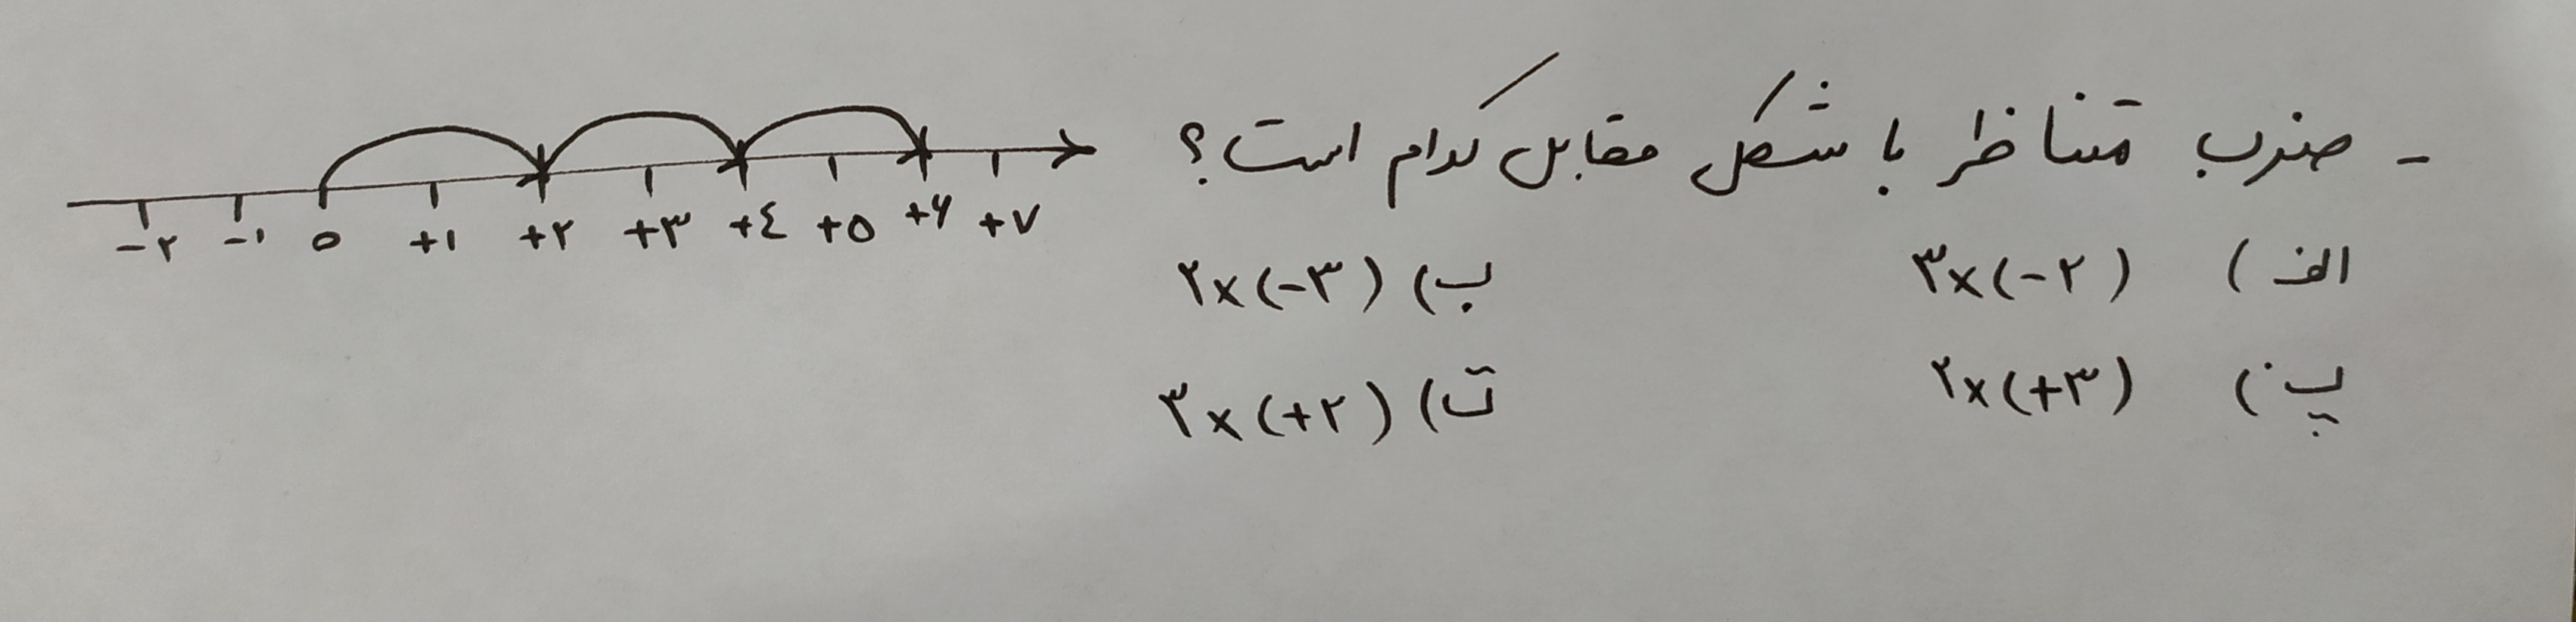 - ضرب متناظر با شکل مقابل کدام است؟
-۲ -۱ ۰ +۱ +۲ +۳ +٤ +۵ +۶ +۷
الف) ۳×(-۲) ب) ۲×(-۳)
پ) ۲×(+۳) ت) ۳×(+۲)